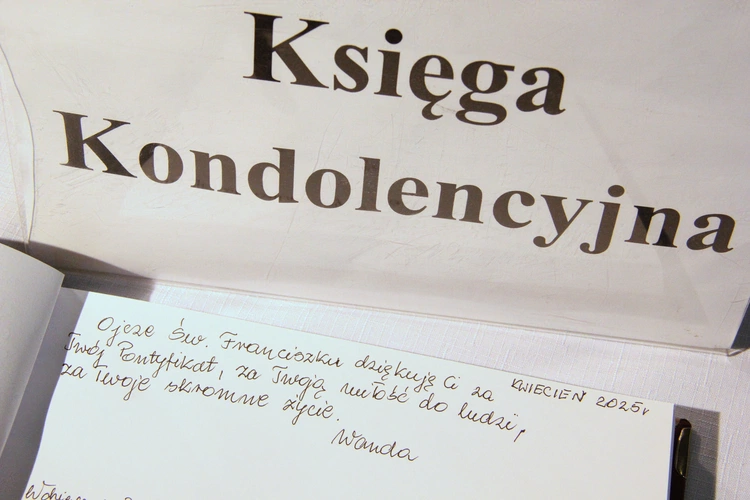 Księga
Kondolencyjna
Ojcze Św. Franciszku dziękuję Ci za
KWIECIEŃ 2025r
Twój Pontyfikat, za Twoją miłość do ludzi,
za Twoje skromne życie.
Wanda